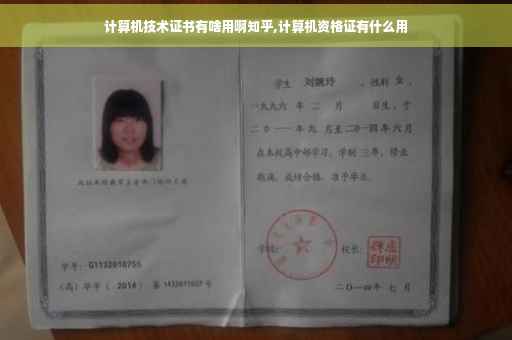 计算机技术证书有啥用啊知乎,计算机资格证有什么用
学生 刘婉玲 ，性别 女 ，
一九九六 年 二 月 日生，于
二〇一一 年 九 月至 二〇一四 年 六 月
在本校高中部学习，学制 三 年，修业
期满，成绩合格，准予毕业。
学号： G1132010755
校长：
(高) 毕字 ( 2014 ) 第 1432011607 号
二〇一四年 七 月